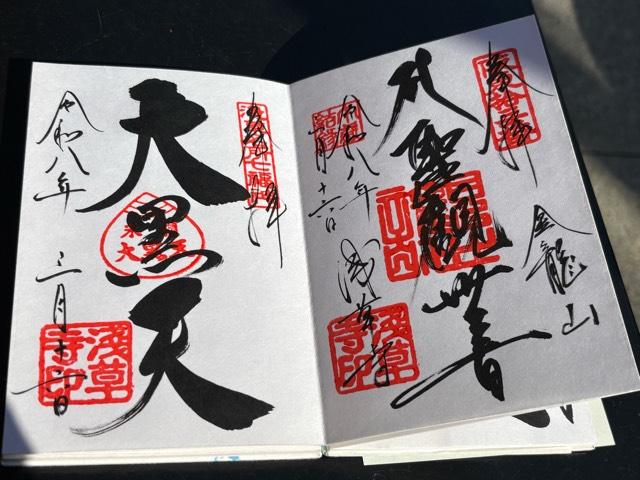 奉拝
金龍山
聖観世音
令和八年
三月十二日
浅草寺
淺草寺印
奉拝
大黒天
令和八年
三月十二日
淺草寺印